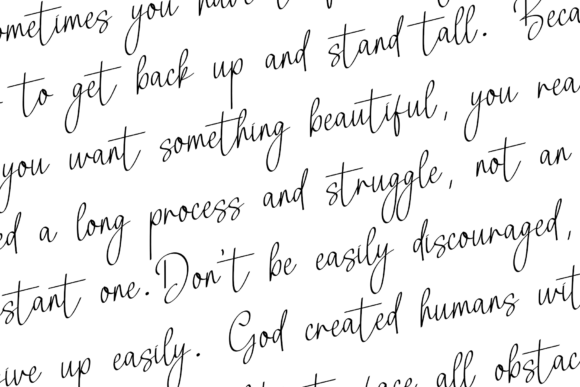 ometimes you have to
to get back up and stand tall. Beca
you want something beautiful, you rea
ed a long process and struggle, not an
stant one. Don't be easily discouraged,
ive up easily. God created humans wit
all obstac